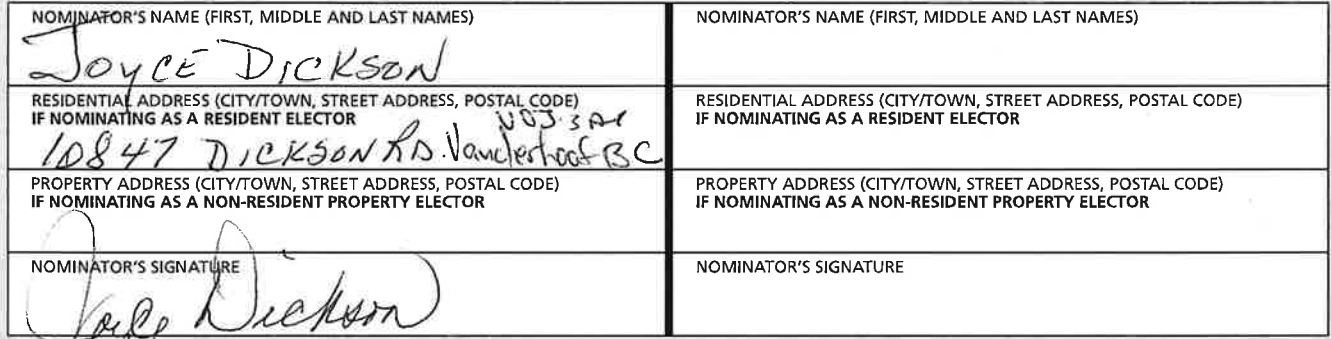 NOMINATOR'S NAME (FIRST, MIDDLE AND LAST NAMES)
JOYCE DICKSON
RESIDENTIAL ADDRESS (CITY/TOWN, STREET ADDRESS, POSTAL CODE)
IF NOMINATING AS A RESIDENT ELECTOR
V0J 3A1
10847 DICKSON RD. Vanderhoof BC
PROPERTY ADDRESS (CITY/TOWN, STREET ADDRESS, POSTAL CODE)
IF NOMINATING AS A NON-RESIDENT PROPERTY ELECTOR
NOMINATOR'S SIGNATURE
Joyce Dickson
NOMINATOR'S NAME (FIRST, MIDDLE AND LAST NAMES)
RESIDENTIAL ADDRESS (CITY/TOWN, STREET ADDRESS, POSTAL CODE)
IF NOMINATING AS A RESIDENT ELECTOR
PROPERTY ADDRESS (CITY/TOWN, STREET ADDRESS, POSTAL CODE)
IF NOMINATING AS A NON-RESIDENT PROPERTY ELECTOR
NOMINATOR'S SIGNATURE